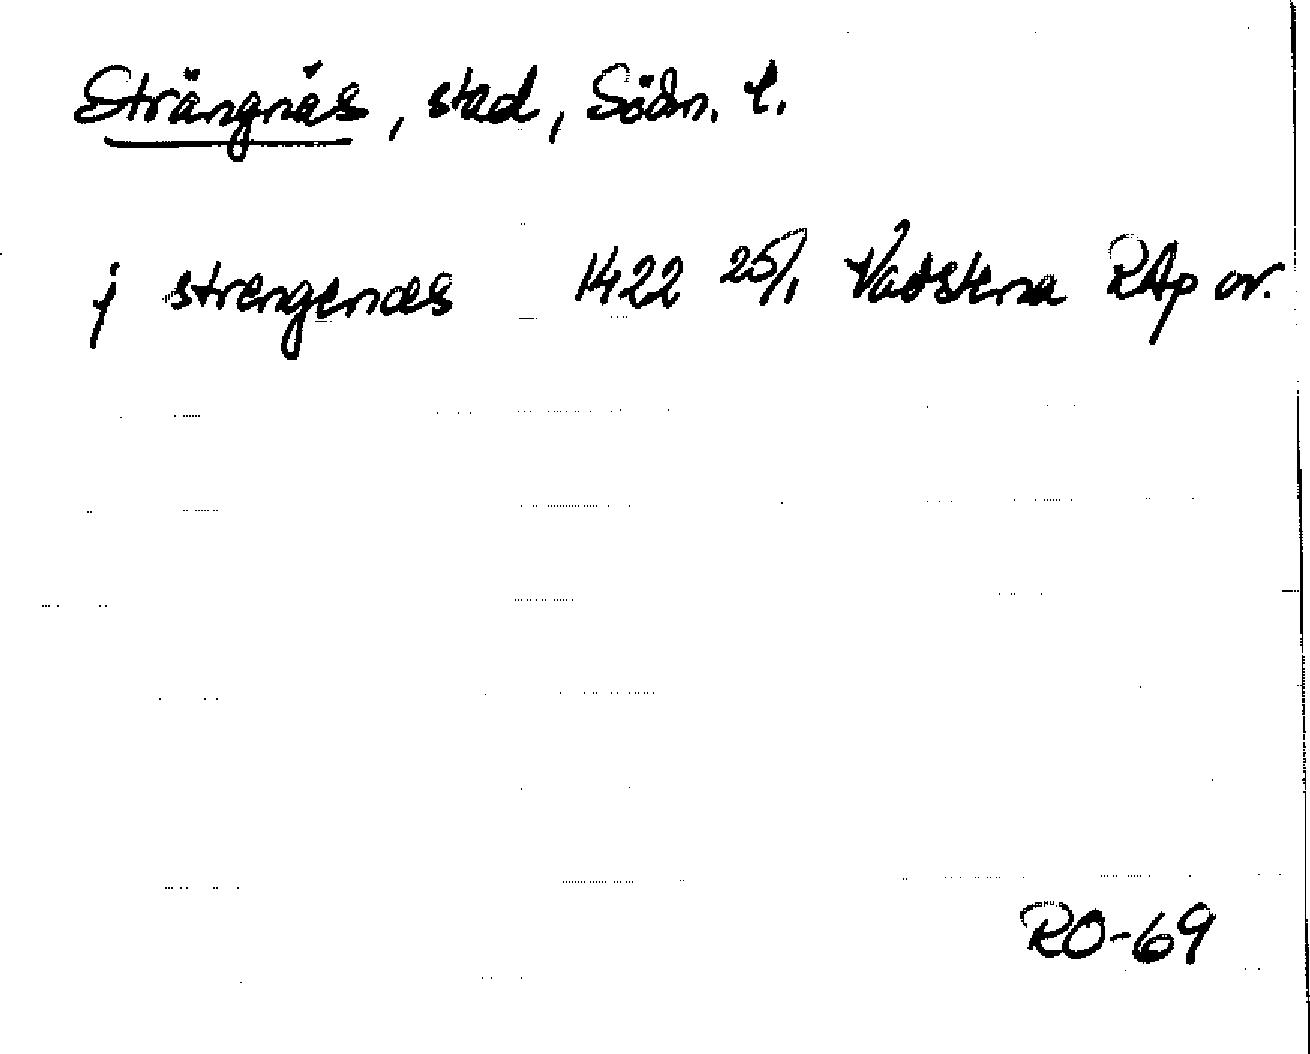 Strängnäs, stad, Södm. l.
j strengenæs 1422 25/1 Vadstena RAp or.
RO-69